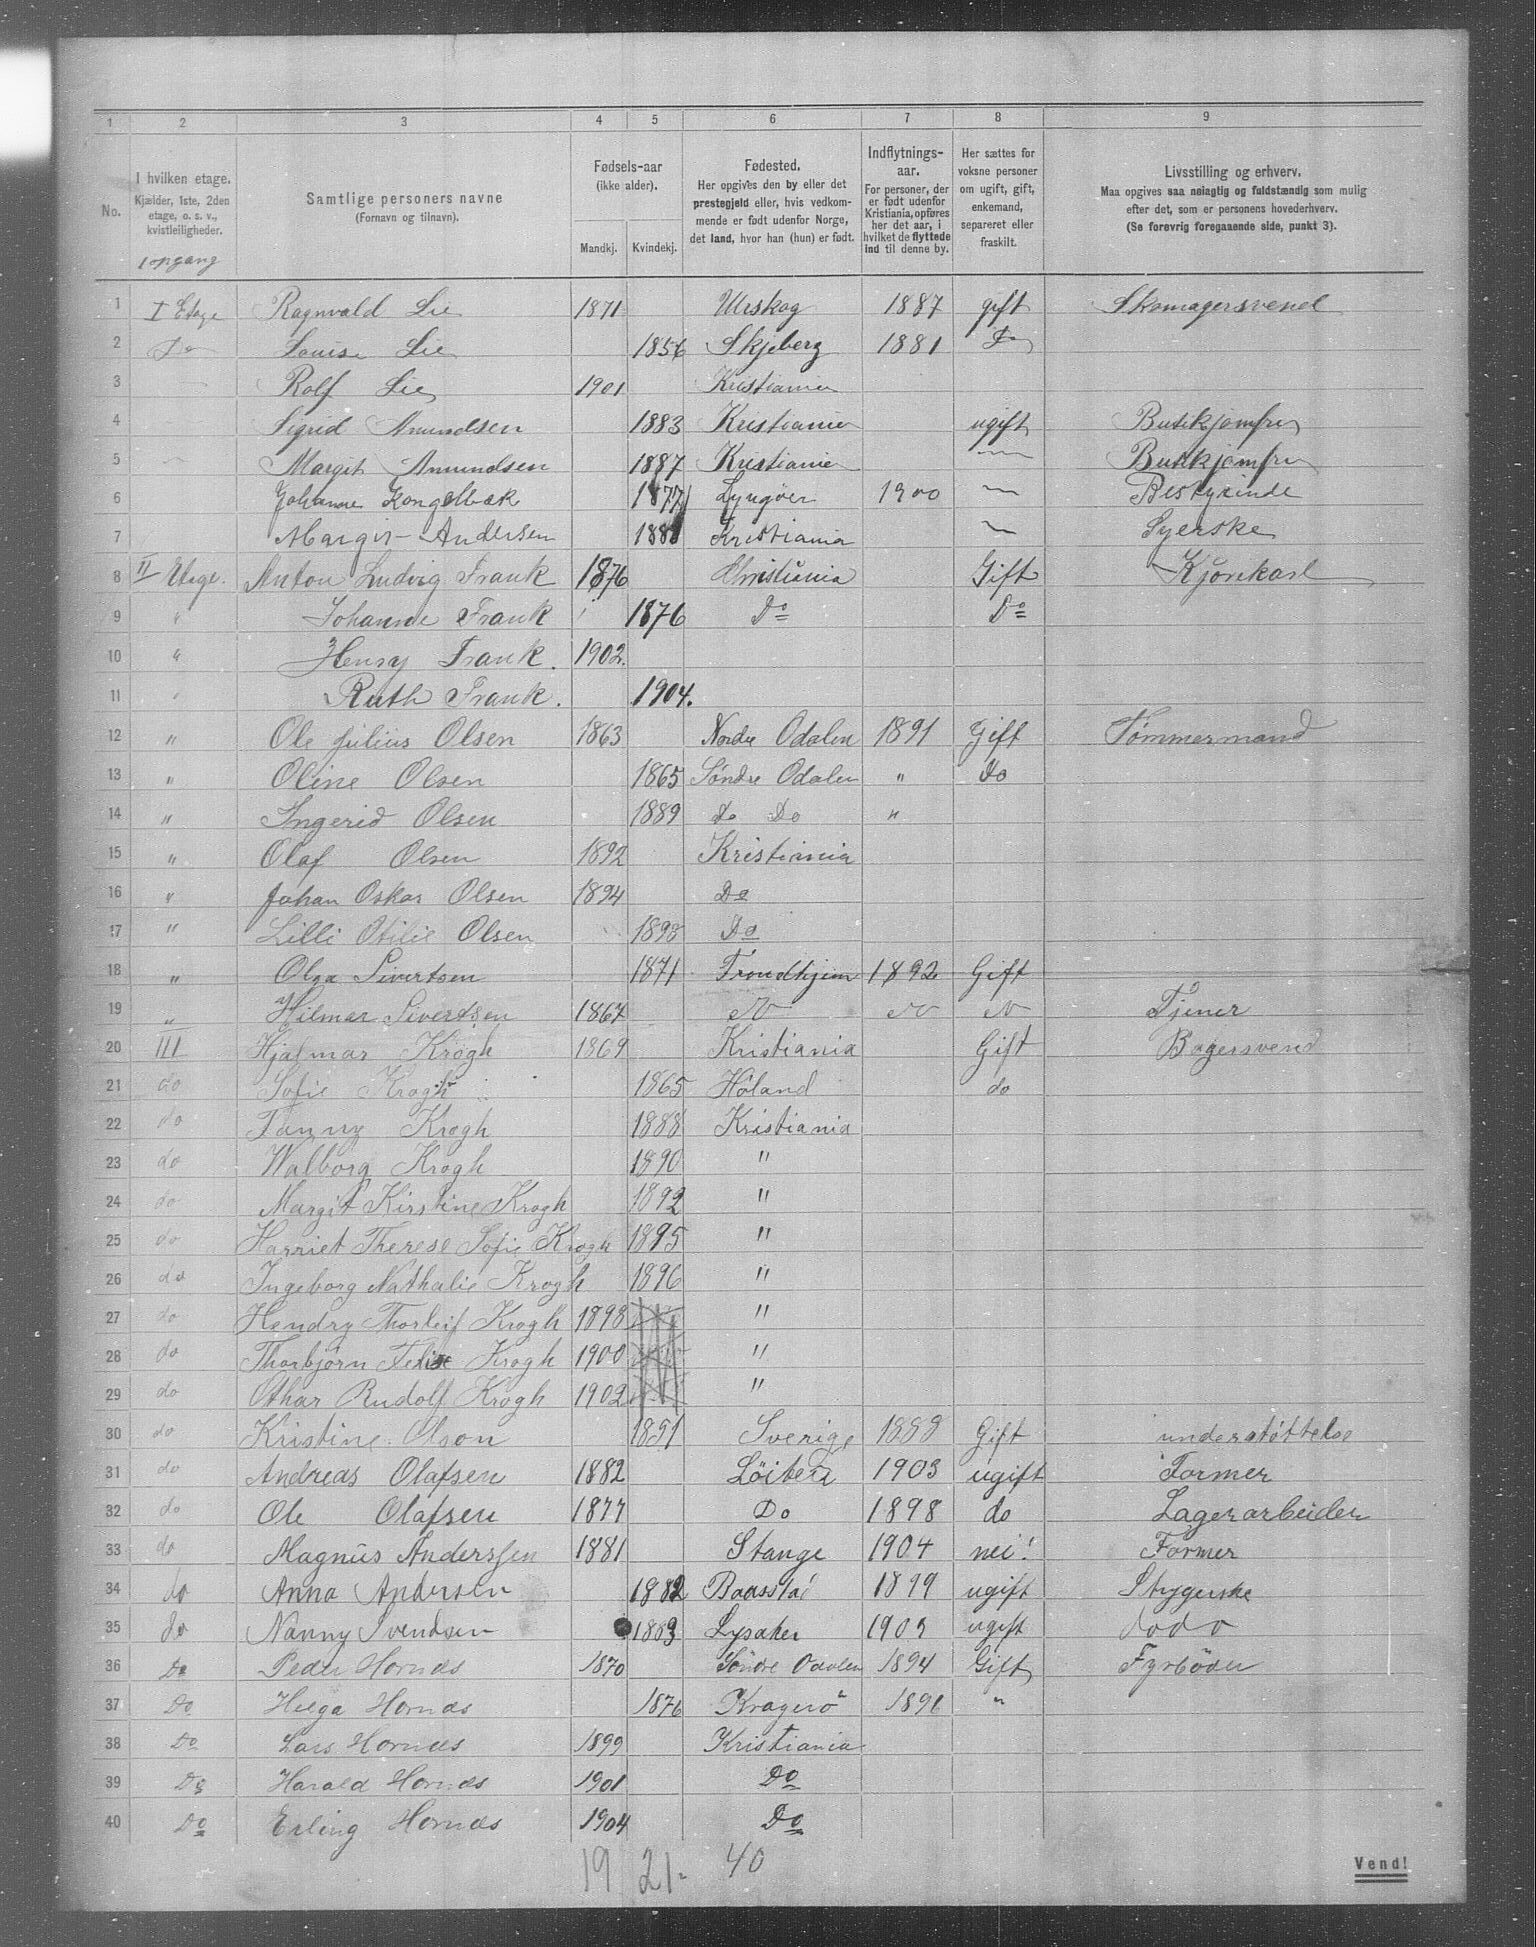 1 2 3 4 5 6 7 8 9
No. I hvilken etage. Kjælder, 1ste, 2den etage, o. s. v., kvistleiligheder. Samtlige personers navne (Fornavn og tilnavn). Fødsels-aar (ikke alder). Mandkj. Kvindekj. Fødested. Her opgives den by eller det prestegjeld eller, hvis vedkommende er født udenfor Norge, det land, hvor han (hun) er født. Indflytnings-aar. For personer, der er født udenfor Kristiania, opføres her det aar, i hvilket de flyttede ind til denne by. Her sættes for voksne personer om ugift, gift, enkemand, separeret eller fraskilt. Livsstilling og erhverv. Maa opgives saa nøiagtig og fuldstændig som mulig efter det, som er personens hovederhverv. (Se forøvrig foregaaende side, punkt 3).
1 opgang
1 I Etage Ragnvald Lie 1871 Urskog 1887 gift Skomagersvend
2 Do Louise Lie 1856 Skjeberg 1881 Do
3 Rolf Lie 1901 Kristiania
4 Sigrid Amundsen 1883 Kristiania ugift Butikjomfru
5 Margit Amundsen 1887 Kristiania — Butikjomfru
6 Johanne Kongelbæk 1877 Lyngöer 1900 — Bestyrinde
7 Margit Andersen 1888 Kristiania — Syerske
8 II Etage. Anton Ludvig Frank 1876 Christiania Gift Kjørekarl
9 " Johanne Frank 1876 Do Do
10 " Henry Frank. 1902.
11 " Ruth Frank. 1904.
12 " Ole Julius Olsen 1863 Nordre Odalen 1891 Gift Tømmermand
13 " Oline Olsen 1865 Søndre Odalen " Do
14 " Ingerid Olsen 1889 Do Do "
15 " Olaf Olsen 1892 Kristiania
16 " Johan Oskar Olsen 1894 Do
17 " Lilli Otilie Olsen 1898 Do
18 " Olga Sivertsen 1871 Trondhjem 1892 Gift
19 " Hilmar Sivertsen 1867 " " " Tjener
20 III Hjalmar Krogh 1869 Kristiania Gift Bagersvend
21 do Sofie Krogh 1865 Høland do
22 do Fanny Krogh 1888 Kristiania
23 do Walborg Krogh 1890 "
24 do Margit Kirstine Krogh 1892 "
25 do Harriet Therese Sofie Krogh 1895 "
26 do Ingeborg Nathalie Krogh 1896 "
27 do Hendry Thorleif Krogh 1898 "
28 do Thorbjørn Felix Krogh 1900 "
29 do Othar Rudolf Krogh 1902 "
30 do Kristine Olson 1851 Sverige 1888 Gift understøttelse
31 do Andreas Olafsen 1882 Löiten 1903 ugift Former
32 do Ole Olafsen 1877 Do 1898 do Lagerarbeider
33 do Magnus Anderssen 1881 Stange 1904 nei! Former
34 do Anna Andersen 1882 Baastad 1899 ugift Strygerske
35 do Nanny Svendsen 1883 Lysaker 1903 ugift dodo
36 Do Peder Hornæs 1870 Söndre Odalen 1894 Gift Fyrböder
37 Do Helga Hornæs 1876 Kragerö 1891 "
38 Do Lars Hornæs 1899 Kristiania
39 Do Harald Hornæs 1901 Do
40 Do Erling Hornæs 1904 Do
19 21- 40
Vend!